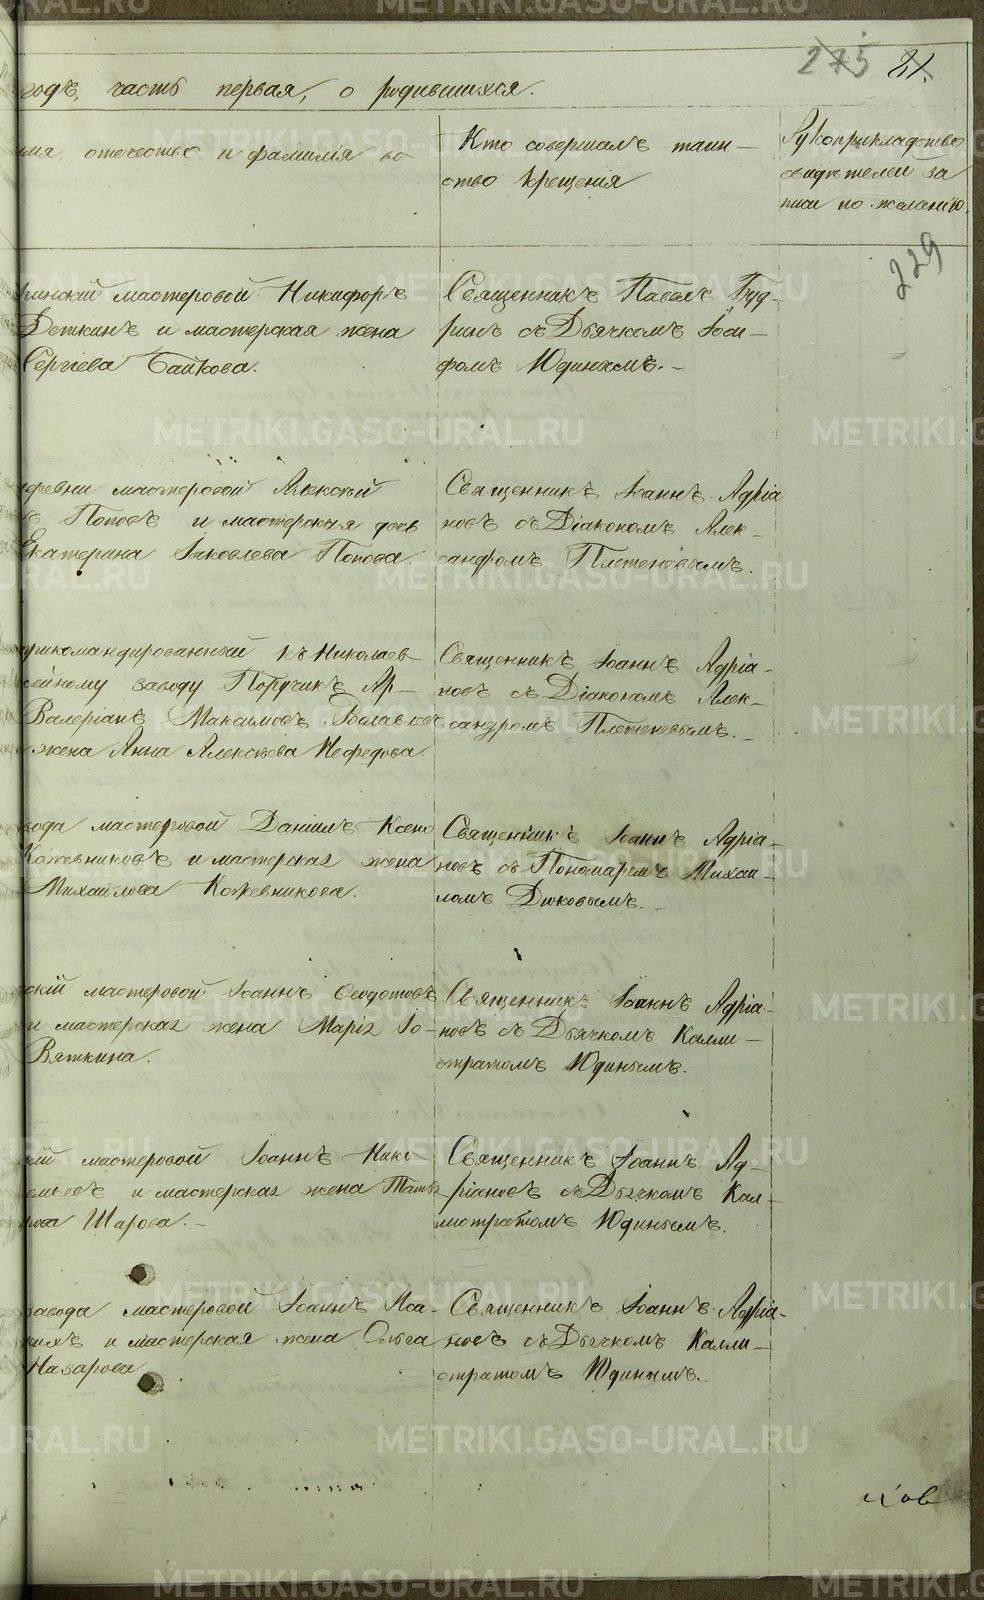 275 21.
годъ, часть первая, о родившихся.
имя, отечество и фамилія во
Кто совершалъ таин-
ство крещенія
Рукоприкладство
свидѣтелей за
писи по желанію.
229
мастеровой Никифоръ
Веткинъ и мастерская жена
Сергіева Байкова.
Священникъ Павелъ Буд-
ринъ съ Дьячкомъ Іоси-
фомъ Юдинымъ.-
деревни мастеровой Алексѣй
Поповъ и мастерская
Екатерина Іаковлева Попова.
Священникъ Іоаннъ Адріа
новъ съ Діакономъ Алек-
сандромъ Плетеневымъ.
прикомандированный къ Николаев-
заводу Поручикъ Ар-
Валеріанъ Максимовъ
жена Анна Алексѣева Нефедова.
Священникъ Іоаннъ Адріа-
новъ съ Діакономъ Алек-
сандромъ Плетеневымъ.-
вода мастеровой Даніилъ Ксено
Кожевниковъ и мастерская жена
Михайлова Кожевникова.
Священникъ Іоаннъ Адріа-
новъ съ Пономаремъ Михаи-
ломъ Дюковымъ.-
скій мастеровой Іоаннъ Ѳеодотовъ
и мастерская жена Марія Іо-
Вяткина.
Священникъ Іоаннъ Адріа-
новъ съ Дьячкомъ Калли-
стратомъ Юдинымъ.
кій мастеровой Іоаннъ Нико-
и мастерская жена Татья
рова Шарова.-
Священникъ Іоаннъ Ад-
ріановъ съ Дьячкомъ Кал-
листратомъ Юдинымъ.
завода мастеровой Іоаннъ Иса-
и мастерская жена Ольга
Назарова
Священникъ Іоаннъ Адріа-
новъ съ Дьячкомъ Калли-
стратомъ Юдинымъ.-
METRIKI.GASO-URAL.RU